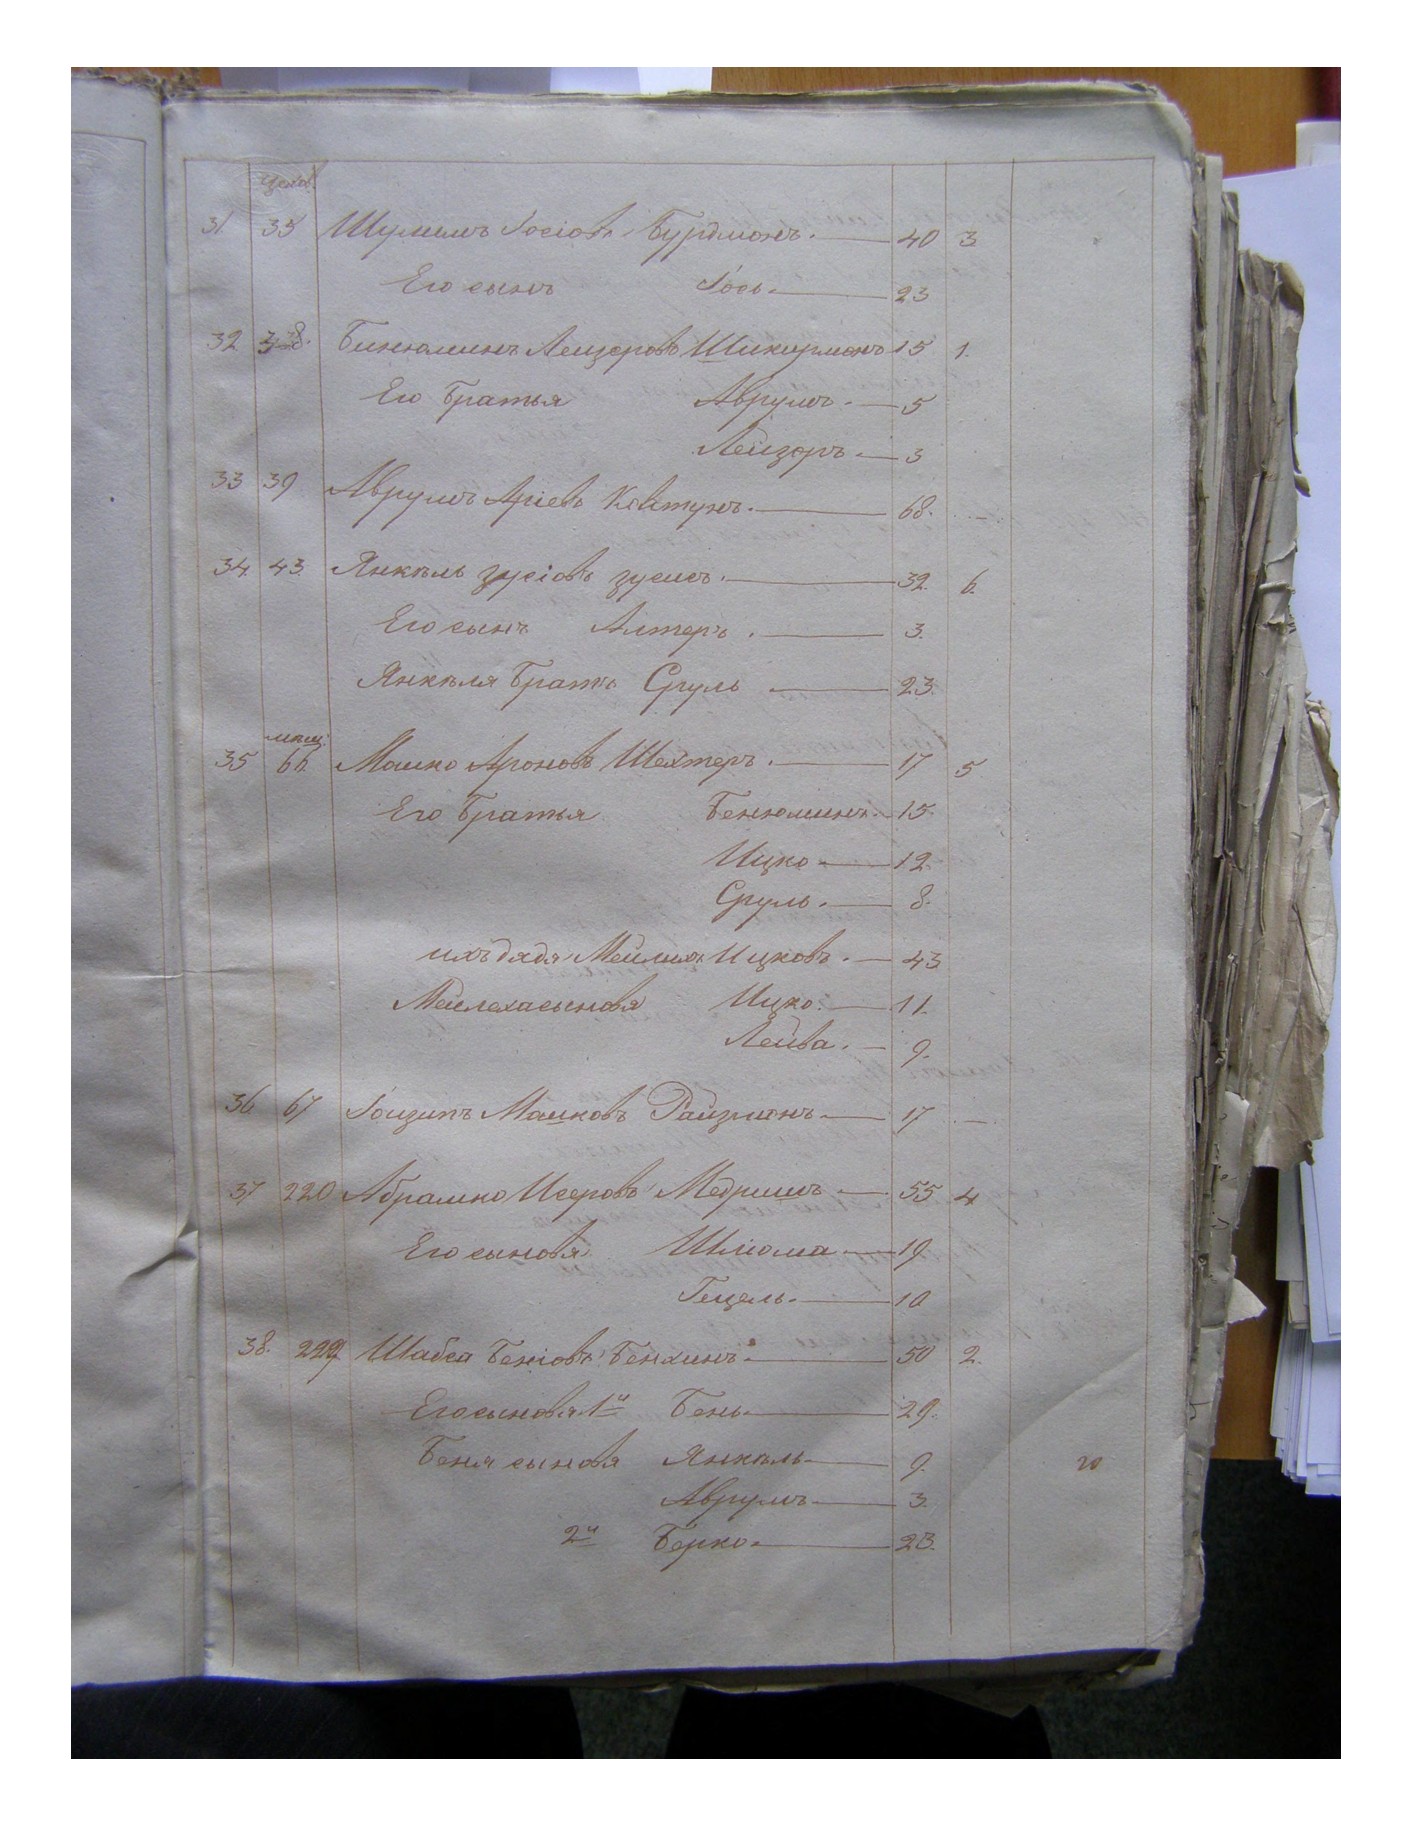 Цехов.
31 35 Шулимъ Іосіовъ Бурдманъ. 40 3.
Его сынъ Іось. 23
32 38. Бинюминъ Лейзеровъ Шикирманъ 15 1.
Его Братья Аврумъ. 5
Лейзоръ. 3
33 39 Аврумъ Аріевъ Квитунъ. 68. —
34. 43. Янкель Зусіовъ Зусисъ. 32. 6.
Его сынъ Алтеръ. 3.
Янкеля Братъ Сруль 23.
мѣщ.
35 66. Машко Ароновъ Шехтеръ. 17 5
Его Братья Бенюминъ. 15.
Ицко 12.
Сруль. 8.
ихъ дядя Мейлихъ Ицковъ. 43
Мейлеха сыновья Ицко. 11.
Лейва. 9.
36 67 Іойзипъ Машковъ Райзманъ 17 —
37 220 Абрамко Исеровъ Медришъ 55 4
Его сыновья Шліома 19.
Гецель. 10
38. 222 Шабса Беніовъ Бенхинъ. 50 2.
Его сыновья 1й Бень. 29.
Беня сыновья Янкель 9.
Аврумъ 3.
2й Берко. 23.